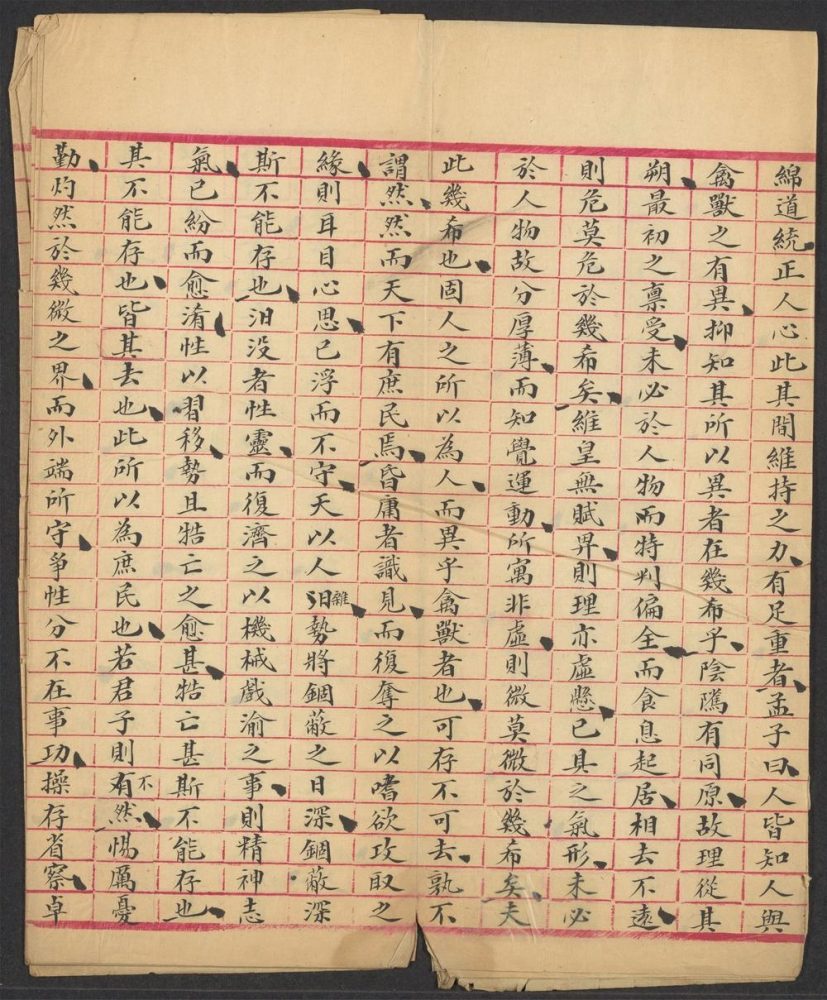 綿道統正人心此其間維持之力有足重者孟子曰人皆知人與
禽獸之有異抑知其所以異者在幾希乎陰隲有同原故理從其
朔最初之稟受未必於人物而特判偏全而食息起居相去不遠
則危莫危於幾希矣維皇無賦畀則理亦虛懸已具之氣形未必
於人物故分厚薄而知覺運動所寓非虛則微莫微於幾希矣夫
此幾希也固人之所以為人而異乎禽獸者也可存不可去孰不
謂然然而天下有庶民焉昏庸者識見而復奪之以嗜欲攻取之
緣則耳目心思已浮而不守天以人汩雜勢將錮蔽之日深錮蔽深
斯不能存也汩没者性靈而復濟之以機械戲渝之事則精神志
氣已紛而愈淆性以習移勢且牿亡之愈甚牿亡甚斯不能存也
其不能存也皆其去也此所以為庶民也若君子則有不然惕厲憂
勤灼然於幾微之界而外端所守爭性分不在事功操存省察卓